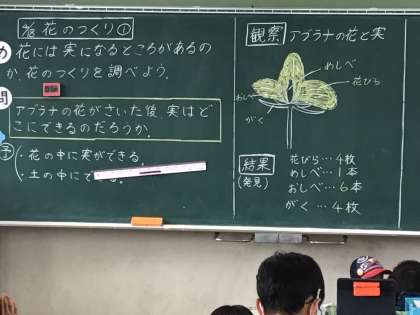 花のつくり①
め
花には実になるところがあるの
か、花のつくりを調べよう。
問
アブラナの花がさいた後、実はど
こにできるのだろうか。
予
・花の中に実ができる。
・土の中にで
る。
観察 アブラナの花と実
めしべ
花びら
おしべ
がく
結果
(発見)
花びら…4枚
めしべ…1本
おしべ…6本
がく…4枚